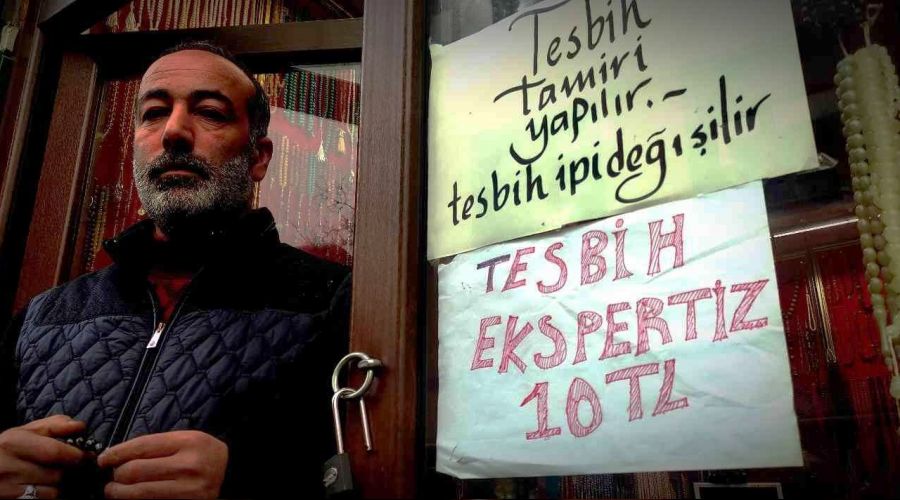 Tesbih
tamiri
yapılır.-
tesbih ipi değişilir
TESBİH
EKSPERTİZ
10 TL